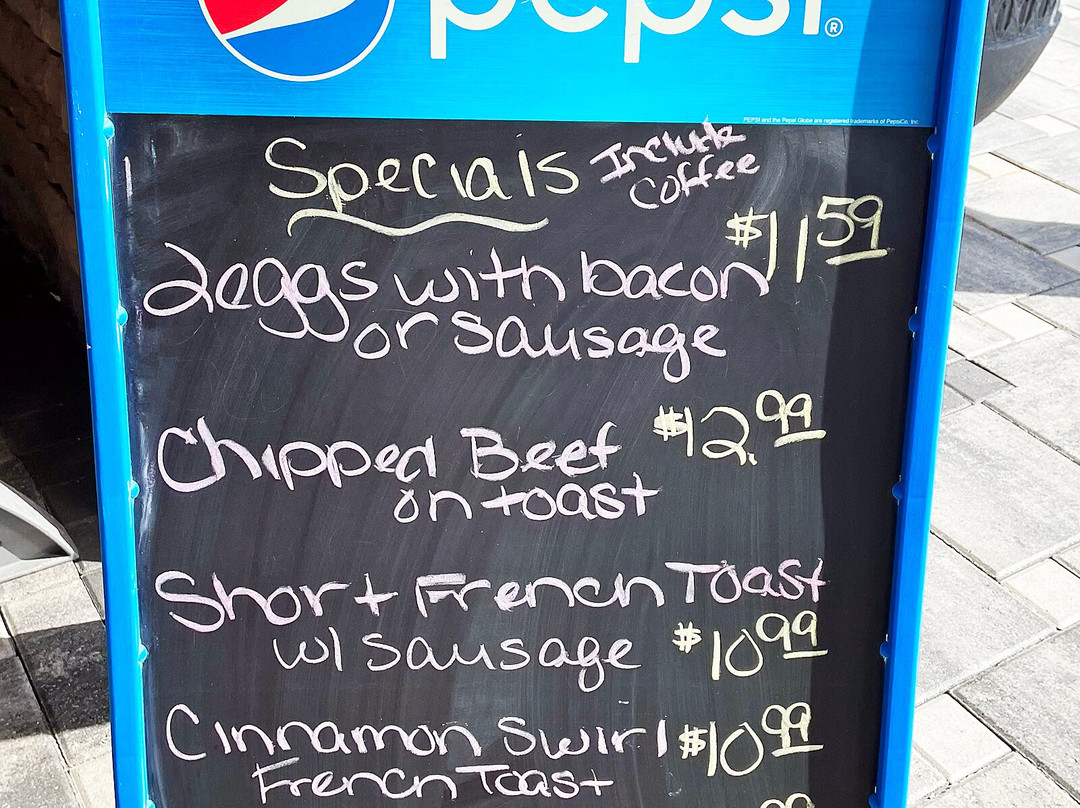 pepsi®
PEPSI and the Pepsi Globe are registered trademarks of PepsiCo, Inc.
Specials Include
Coffee
$11 59
2eggs with bacon
or sausage
Chipped Beef $12.99
on toast
Short French Toast
w/ sausage $10 99
Cinnamon Swirl $10 99
French Toast
99